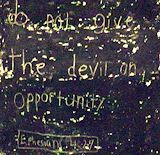 do not give
the devil an
opportunity
Ephesians 4:27